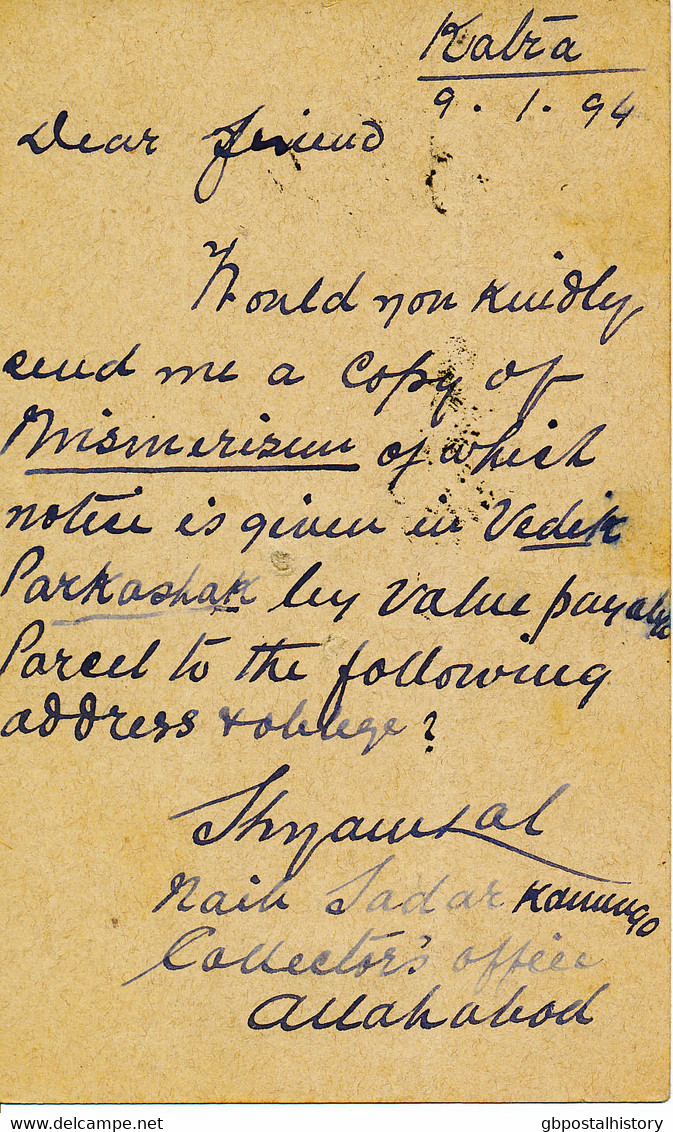 Katra
9.1.94
Dear friend
Would you kindly
send me a copy of
Mismerisum of which
notice is given in Vedik
Parkashak by value payable
Parcel to the following
address & oblege?
Shyam Lal
Naib Sadar Kanungo
Collector's office
Allahabad
www.delcampe.net
gbpostalhistory